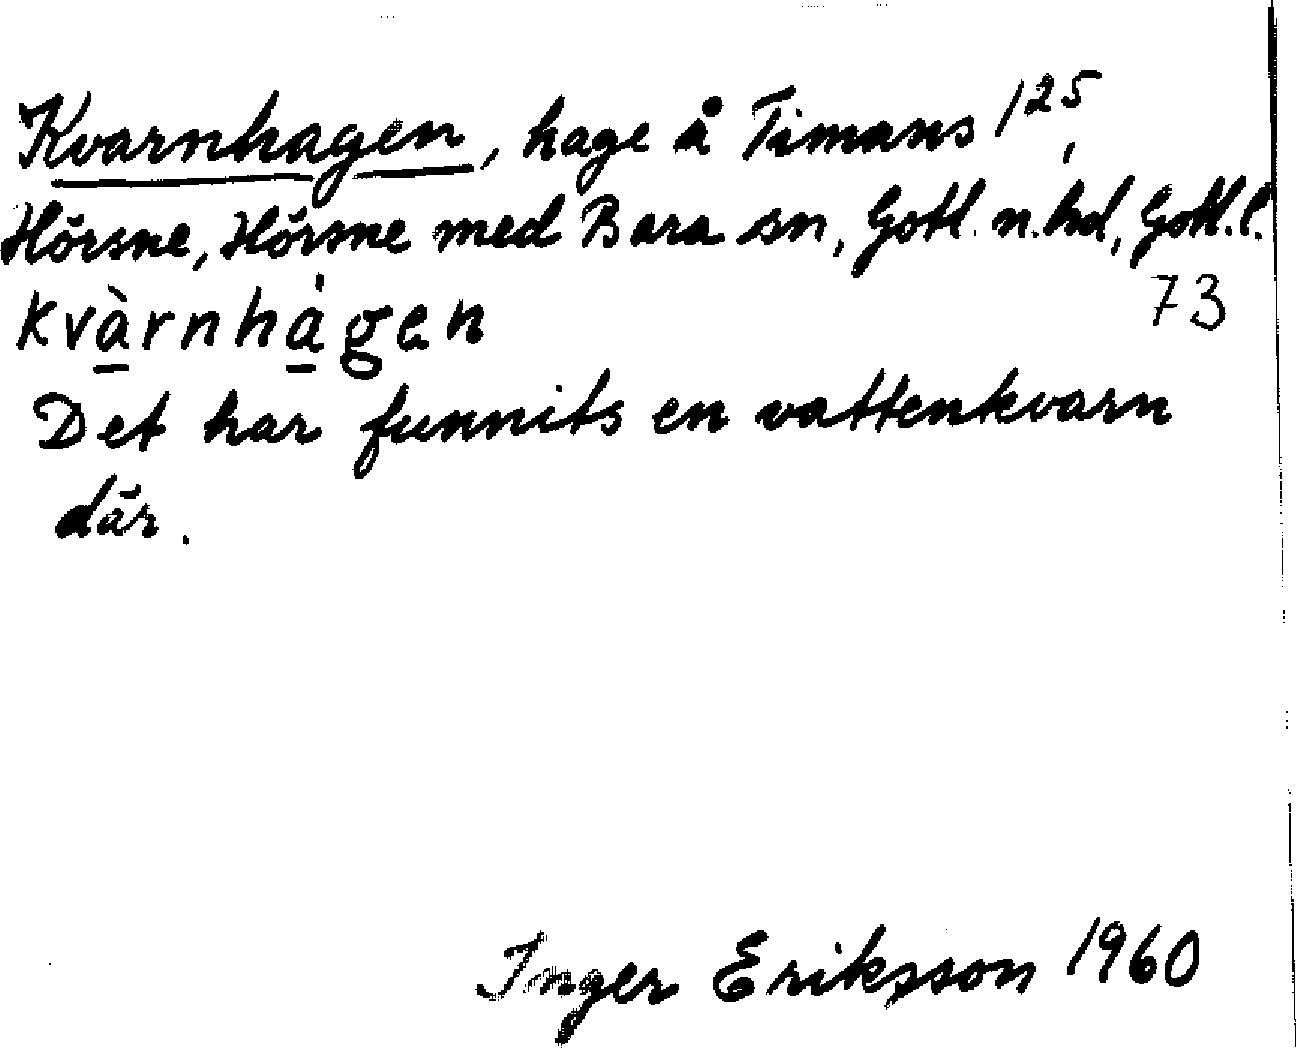 Kvarnhagen, hage å Timans 1²⁵,
Hörsne, Hörsne med Bara sn, Gotl. n. hd, Gotl. l.
kvà̠rnhá̠gen
73
Det har funnits en vattenkvarn
där.
Inger Eriksson 1960